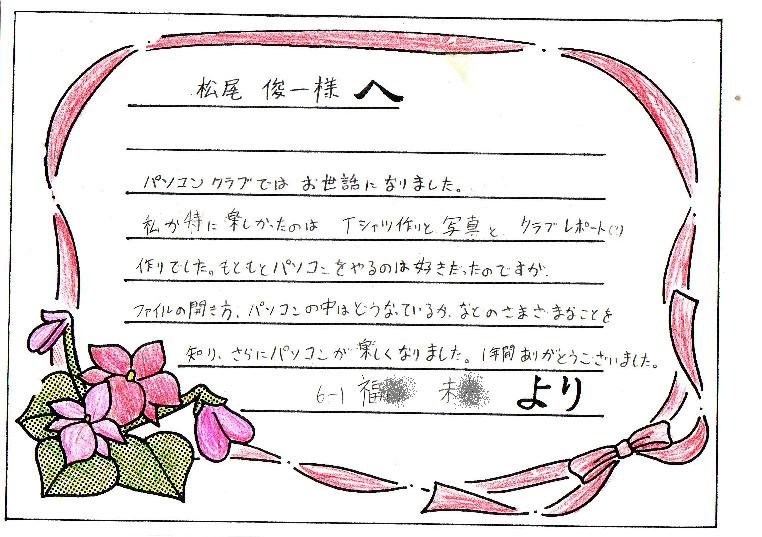 松尾 俊一様 へ
パソコンクラブでは お世話になりました。
私が特に楽しかったのは Tシャツ作りと 写真と クラブレポート(?)
作りでした。もともとパソコンをやるのは好きだったのですが、
ファイルの開き方、パソコンの中はどうなっているか、などのさまざまなことを
知り、さらにパソコンが楽しくなりました。1年間ありがとうございました。
6-1 福 未 より